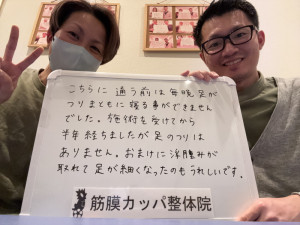 こちらに通う前は毎晩足が
つりまともに寝る事ができません
でした。施術を受けてから
半年経ちましたが足のつりは
ありません。おまけに浮腫みが
取れて足が細くなったのもうれしいです。
筋膜カッパ整体院